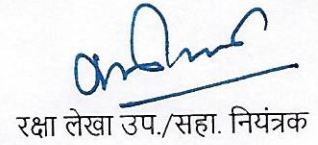 रक्षा लेखा उप./सहा. नियंत्रक